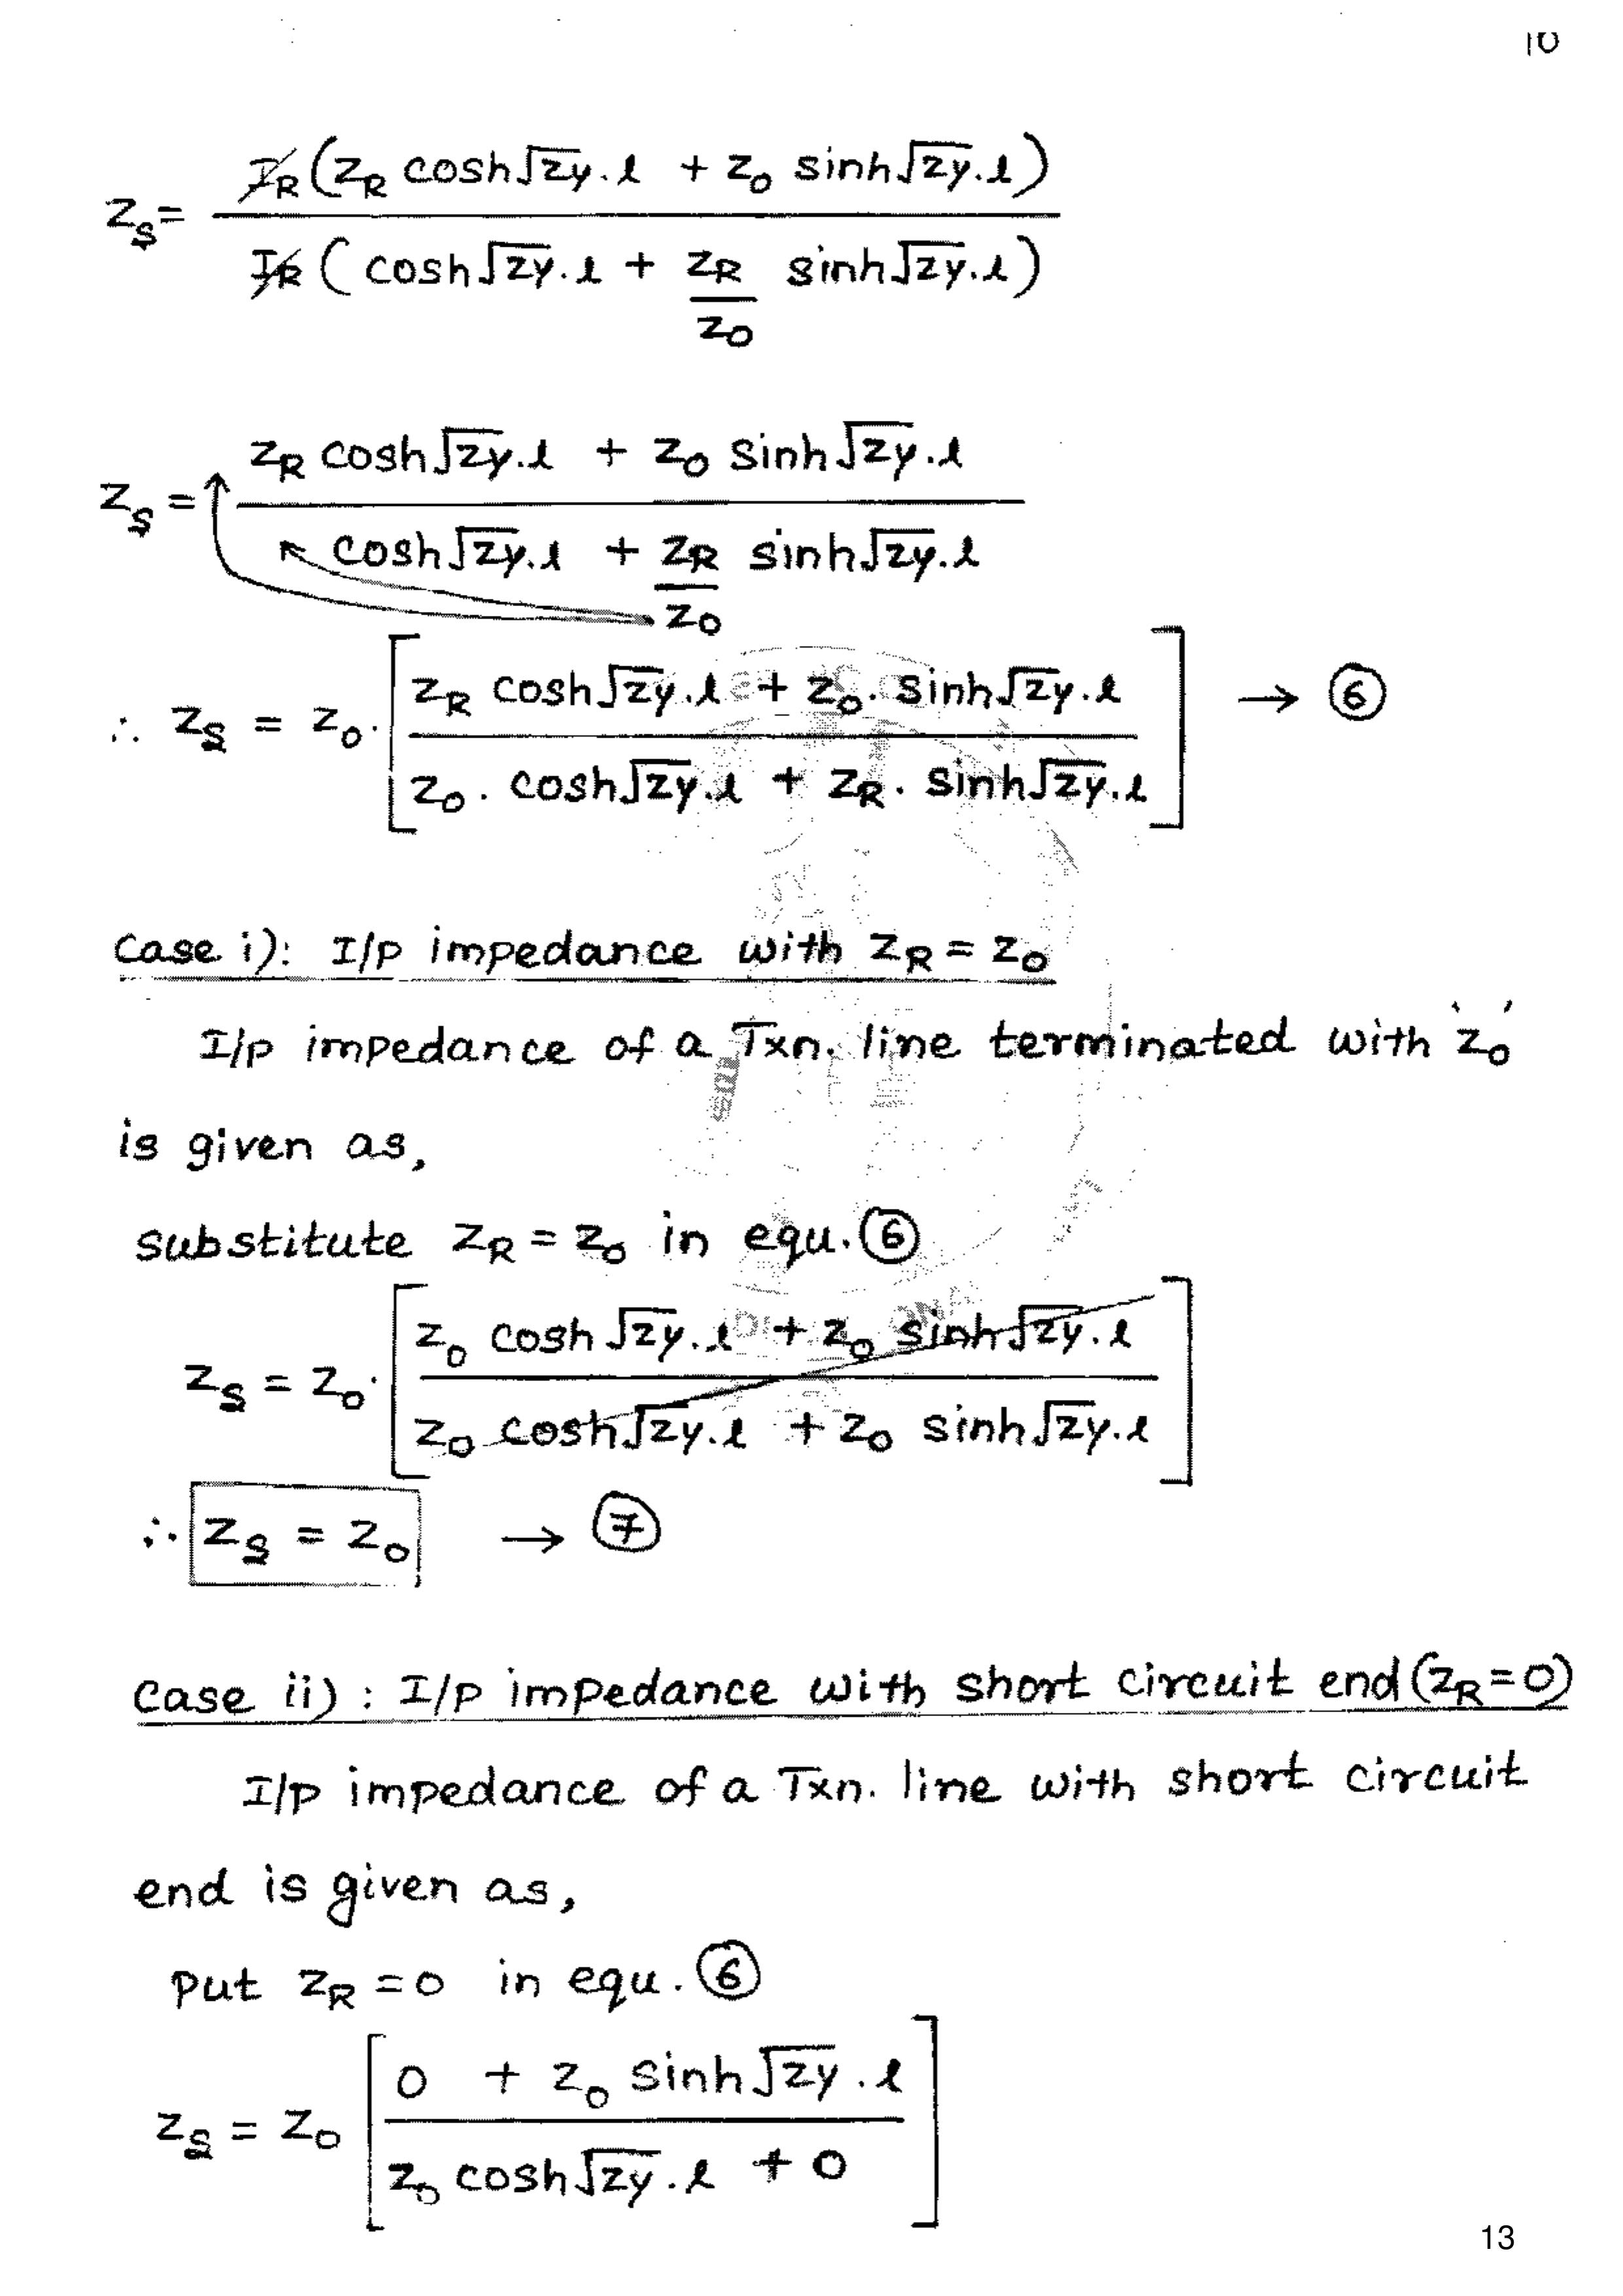 10
Z_S = I_R (Z_R cosh√zy.l + Z_0 sinh√zy.l) / I_R (cosh√zy.l + Z_R/Z_0 sinh√zy.l)
Z_S = Z_R cosh√zy.l + Z_0 sinh√zy.l / cosh√zy.l + Z_R/Z_0 sinh√zy.l
∴ Z_S = Z_0 . [Z_R cosh√zy.l + Z_0 . sinh√zy.l / Z_0 . cosh√zy.l + Z_R . sinh√zy.l] → ⑥
Case i): I/p impedance with Z_R = Z_0
I/p impedance of a Txn. line terminated with 'Z_0'
is given as,
substitute Z_R = Z_0 in equ. ⑥
Z_S = Z_0 . [Z_0 cosh√zy.l + Z_0 sinh√zy.l / Z_0 cosh√zy.l + Z_0 sinh√zy.l]
∴ Z_S = Z_0 → ⑦
Case ii) : I/p impedance with short circuit end (Z_R = 0)
I/p impedance of a Txn. line with short circuit
end is given as,
put Z_R = 0 in equ. ⑥
Z_S = Z_0 [0 + Z_0 sinh√zy.l / Z_0 cosh√zy.l + 0]
13